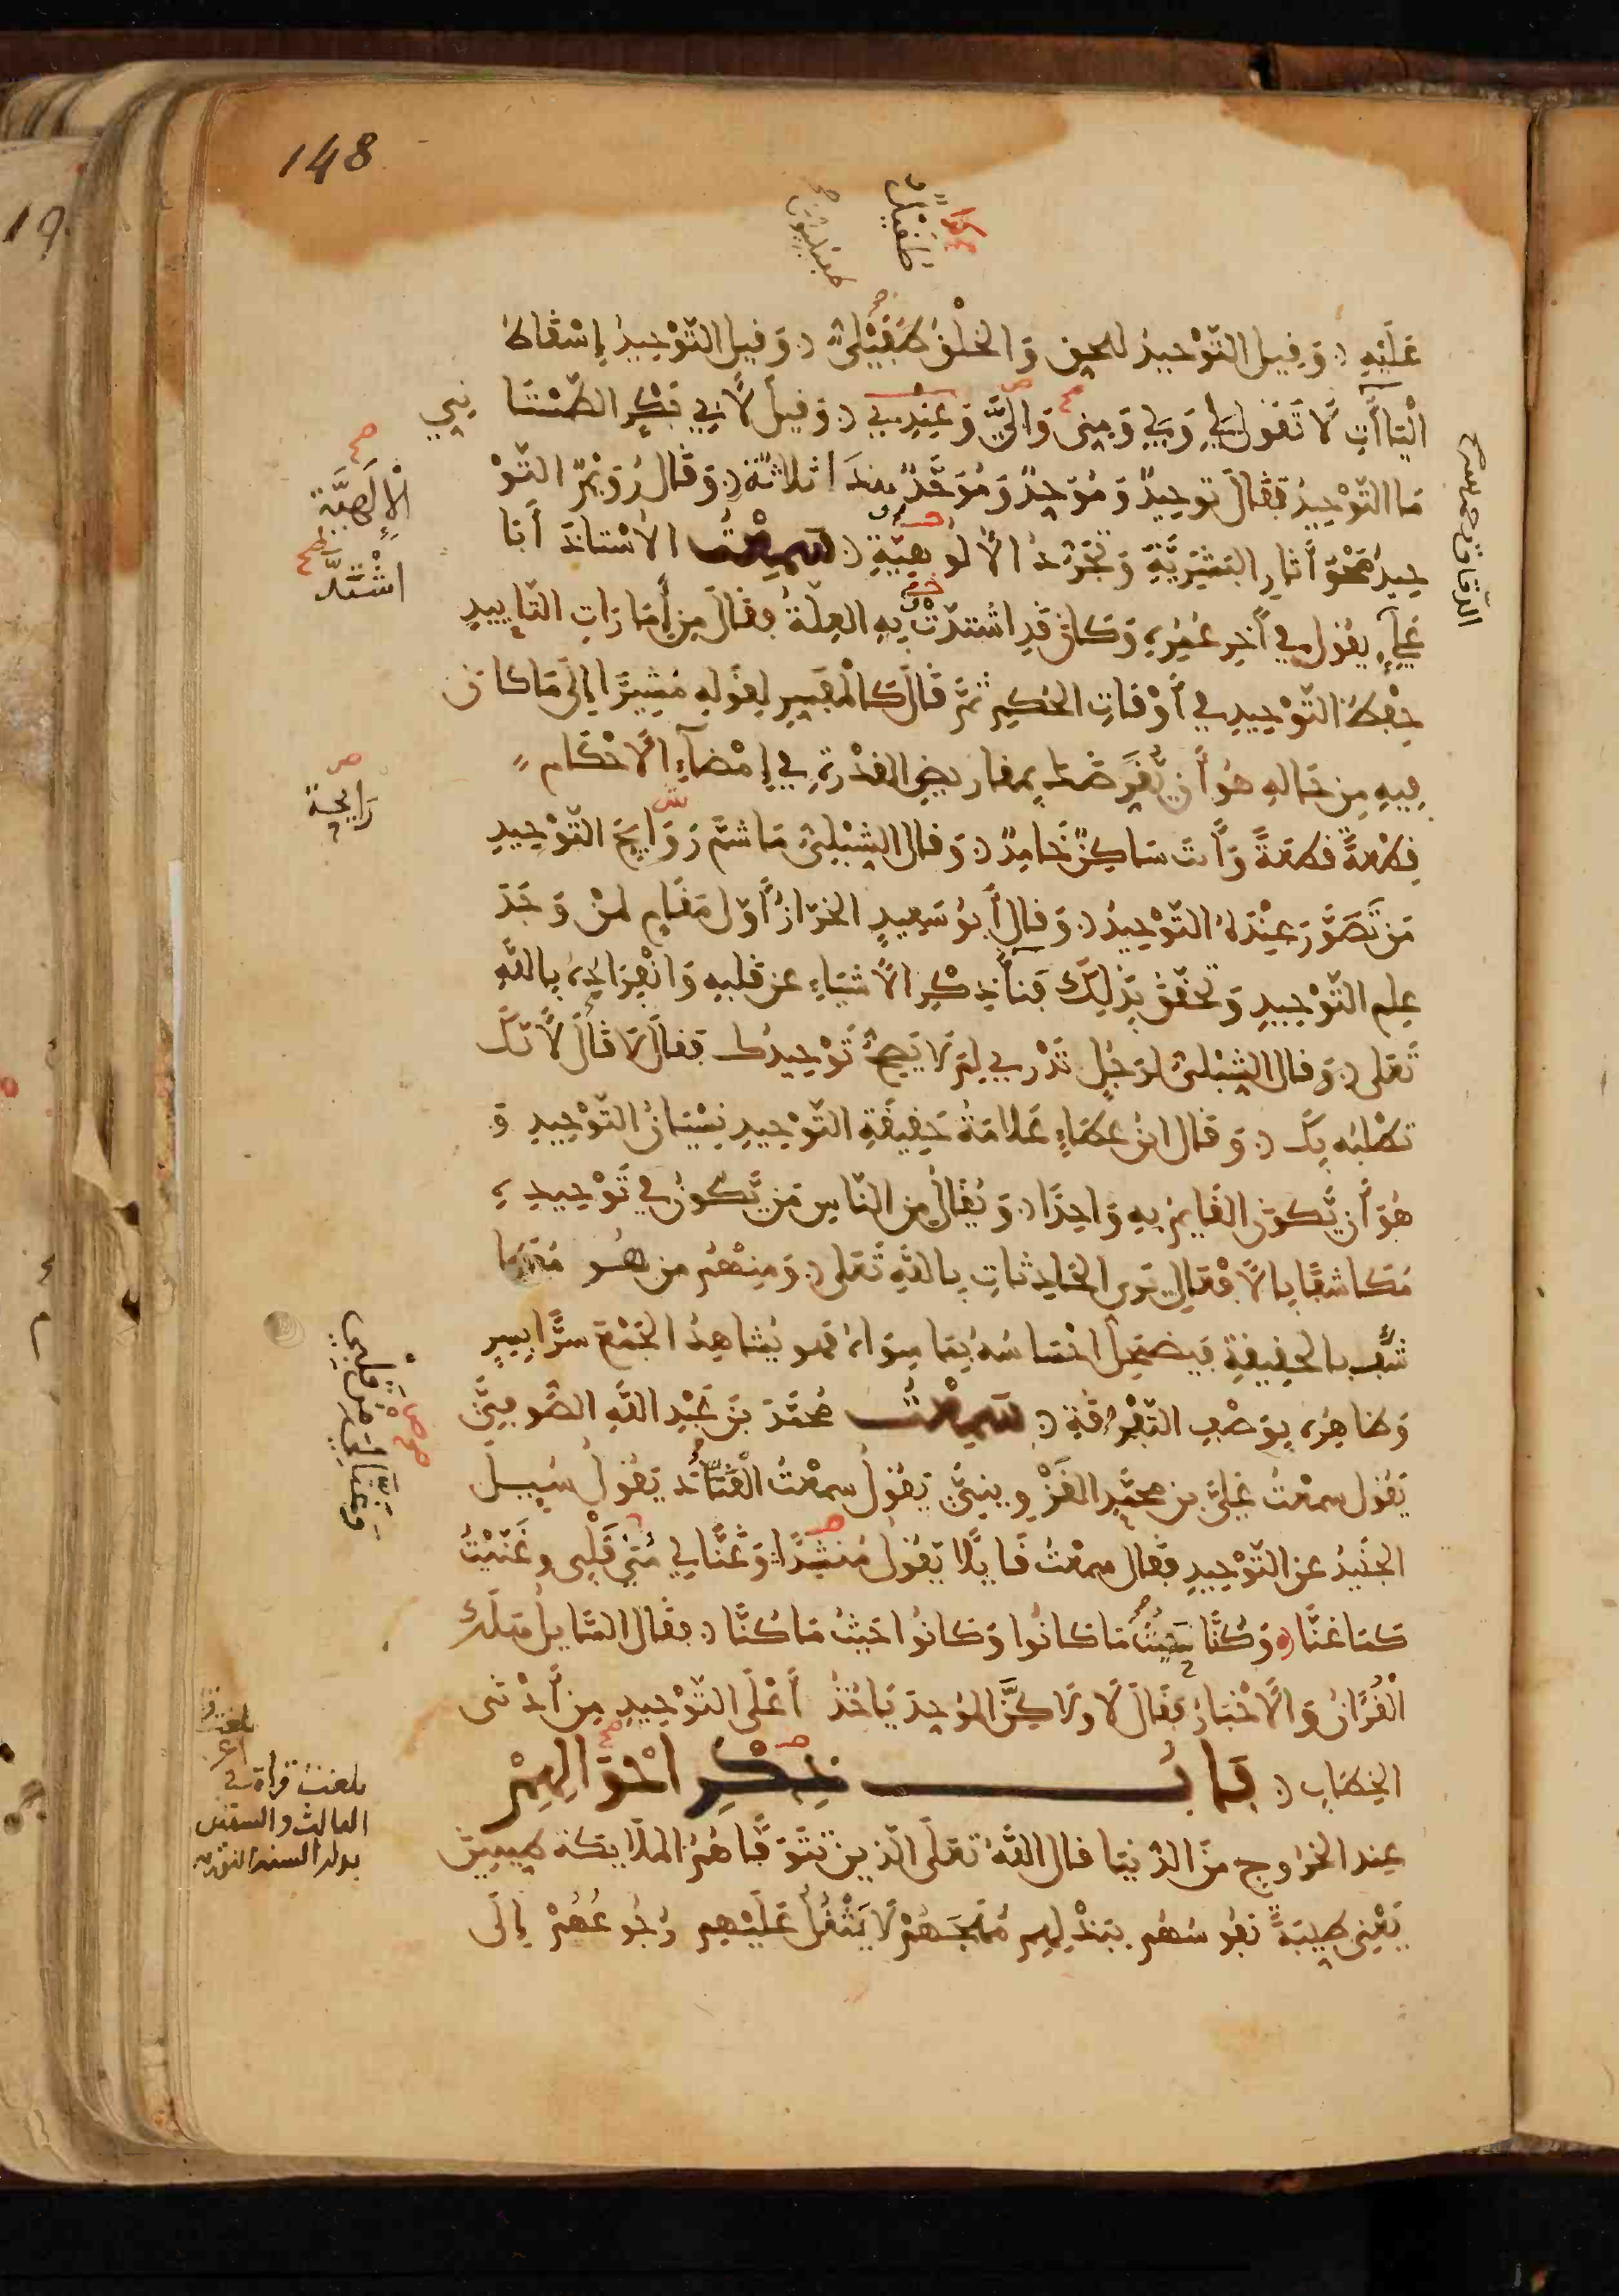 148
طفيلي
طفيليون
عَلَيْهِ وَقِيلَ التَّوْحِيدُ لِلحق وَالخَلْقُ طُفَيْلِىٌّ وَقِيلَ التَّوْحِيدُ إِسْقَاطُ
الْيَاآتِ لَا تَقُولُ لِي وَبِي وَمِنِّى وَإِلَيَّ وَعِنْدِي وَقِيلَ لِأَبِي بَكْرٍ الطَّمَسْتَانِيِ
مَا التَّوْحِيدُ فَقَالَ تَوحِيدٌ وَمُوَحِّدٌ وَمُوَحَّدٌ هذا ثلاثَةٌ وَقَالَ رُوَيْمٌ التَّوْ
حِيدُ مَحْوُ آثَارِ البَشَرِيَّةِ وَتَجَرُّدُ الأُلُوهِيَّةِ سَمِعْتُ الأُسْتَاذَ أَبَا
عَلِي يَقُولُ فِي آخِرِ عُمُرِهِ وَكَانَ قَدِ اشْتَدَّتْ بِهِ العِلَّةُ فَقَالَ مِن أَمَارَاتِ التَّايِيدِ
حِفْظُ التَّوْحِيدِ فِي أَوْقَاتِ الحُكْمِ ثُمَّ قَالَ كَالْمُفَسِّرِ لِقَوْلِهِ مُشِيرًا إِلَى مَا كَانَ
فِيهِ مِن حَالِهِ هُوَ أَن يُقَرِّضَكَ بِمقَاريضِ القُدْرَةِ فِي إِمْضَاءِ الأَحْكَامِ
قِطْعَةً قطعَةً وَأَنتَ سَاكِنٌ خَامِدٌ وَقَالَ الشِّبْلِىُّ مَا شَمَّ رَوَايِحَ التَّوْحِيدِ
مَن تَصَوَّرَ عِنْدَهُ التَّوْحِيدُ وَقَالَ أَبُو سَعِيدٍ الخَرَّازُ أَوَّلُ مَقَامٍ لِمَنْ وَجَدَ
عِلمَ التَّوْحِيدِ وَتَحَقَّقَ بِذَلِكَ فَنَاءُ ذِكْرِ الأَشْيَاءِ عَن قَلبِهِ وَانْفِرَادُهُ بِاللَّهِ
تَعَلَى وَقَالَ الشِّبْلِىُّ لِرَجُلٍ تَدْرِي لِمَ لَا يَصِحُّ تَوْحِيدُكَ فَقَالَ لَا قَالَ لِأَنَّكَ
تَطْلبُه بِكَ وَقَالَ ابْنُ عَطَاءٍ عَلَامَةُ حَقِيقَةِ التَّوْحِيدِ نِسْيَانُ التَّوْحِيدِ وَ
هُوَ أَن يَّكُونَ القَايِمُ بِهِ وَاحِدًا وَيُقَالُ مِنَ النَّاسِ مَن يَّكُونُ فِي تَوْحِيدِهِ
مُكَاشَفًا بِالأَفْعَالِ يَرَى الحَادِثَاتِ بِاللَّهِ تَعَلَى وَمِنْهُم مَن هُو مُكَا
شَفٌ بِالحَقِيقَةِ فَيَضمَحِلُّ احْسَاسُهُ بِمَا سِوَاهُ فَهو يُشَاهِدُ الجَمْعَ سِرًّا بِسِرٍّ
وَظَاهِرُهُ بِوَصْفِ التَّفْرِقَةِ سَمِعْتُ مُحَمَّدَ بْنَ عَبْدِ اللَّهِ الصُّوفِيَّ
يَقُولُ سَمِعْتُ عَلِيَّ بن مُحَمَّدٍ القَزْوِينِيَّ يَقُولُ سمِعْتُ القَنَّادَ يَقُولُ سُيِلَ
الجُنَيْدُ عَنِ التَّوْحِيدِ فَقَالَ سمِعْتُ قَايِلًا يَقُولُ مُنْشِدًا وَغَنَّا لِي مُنَى قَلْبِي وغَنَّيْتُ
كَمَا غَنَّا وَكُنَّا حَيْثُ مَا كَانُوا وَكَانُوا حَيْثُ مَا كُنَّا فَقَالَ السَّايِلُ هَلَكَ
الْقُرْآنُ وَالأَخْبَارُ فَقَالَ لَا وَلَاكِنَّ المُوَحِّدَ يَاخُذُ أَعْلَى التَّوْحِيدِ مِن أَدْنَى
الخِطَابِ بَابُ ذِكْرِ احْوَالِهِمْ
عِند الخُرُوجِ مِنَ الدُّنْيَا قال اللَّهُ تَعَلَى الَّذِينَ تَتَوَفَّاهُمُ المَلَايِكَة طَيِّبِينَ
يَعْنِى طَيِّبَةً نفُوسُهُم بِبَذْلِهِم مُهَجَهُمْ لَا يَثْقُلُ عَلَيْهِم رُجُوعُهُمْ إِلَى
الدقاق
الْإِلَهِيَّة
اشْتَدَّ
رَايِحة
وَغَنَّا لِي مِن قلبِي
بلغت قراة في
الثالث والستين